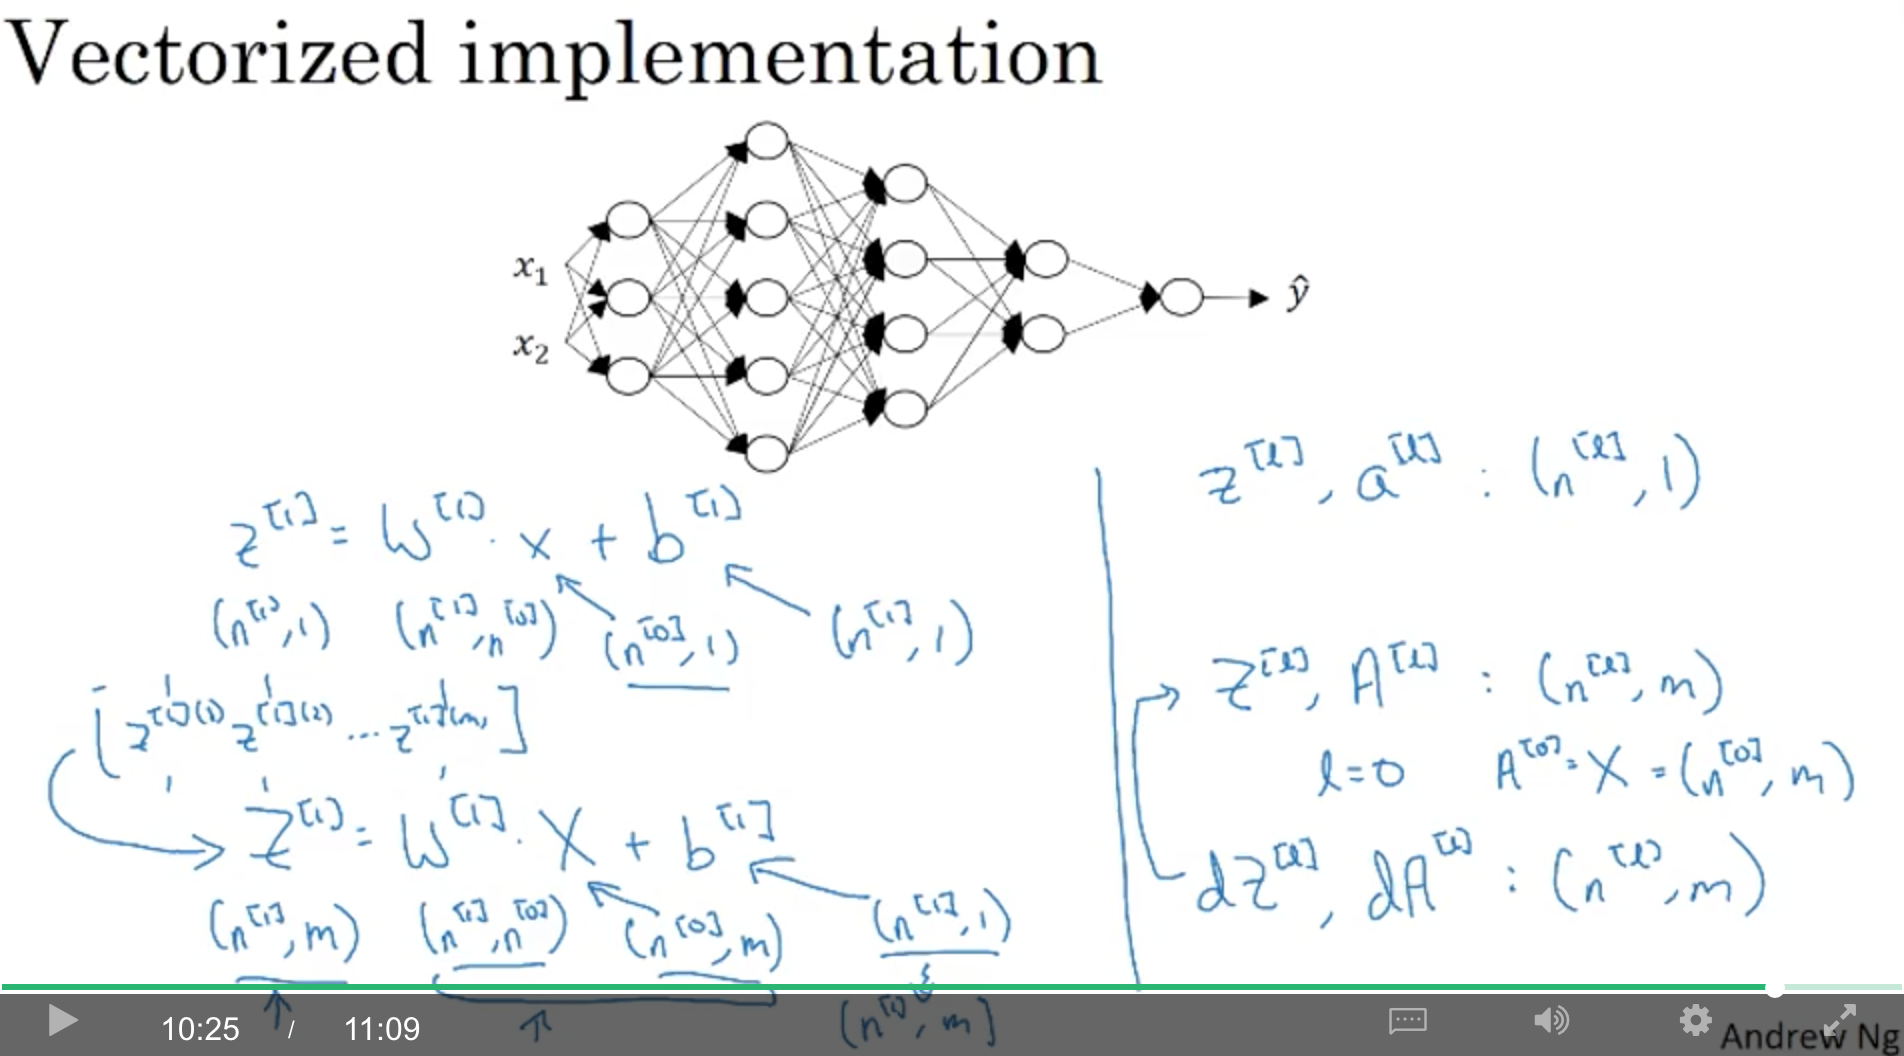 Vectorized implementation
x₁
x₂
ŷ
z^[1] = W^[1] · x + b^[1]
(n^[1], 1) (n^[1], n^[0]) (n^[0], 1) (n^[1], 1)
[z^[1](1) z^[1](2) ... z^[1](m)]
Z^[1] = W^[1] · X + b^[1]
(n^[1], m) (n^[1], n^[0]) (n^[0], m) (n^[1], 1)
(n^[1], m)
z^[l], a^[l] : (n^[l], 1)
Z^[l], A^[l] : (n^[l], m)
l=0 A^[0] = X = (n^[0], m)
dZ^[l], dA^[l] : (n^[l], m)
10:25 / 11:09
Andrew Ng